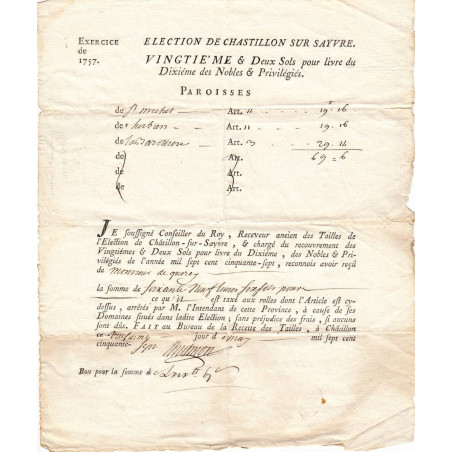 EXERCICE
de
1757.
ELECTION DE CHASTILLON SUR SAYVRE.
VINGTIEME & Deux Sols pour livre du
Dixiéme des Nobles & Privilégiés.
PAROISSES
de St michel Art. 11 19 16
de Art. 11 19 16
de Art. 29 14
de Art. 69 = 6
de Art.
de Art.
JE soussigné Conseiller du Roy, Receveur ancien des Tailles de
l'Election de Châtillon-sur-Sayvre, & chargé du recouvrement des
Vingtiémes & Deux Sols pour livre du Dixiéme, des Nobles & Pri-
vilégiés de l'année mil sept cent cinquante-sept, reconnois avoir reçû
de monsieur de
la somme de soixante neuf livres six sols pour
ce qu'il est taxé aux rolles dont l'Article est cy-
dessus, arrêtés par M. l'Intendant de cette Province, à cause de ses
Domaines situés dans ladite Election; sans préjudice des frais, si aucuns
sont dûs. FAIT au Bureau de la Recette des Tailles, à Châtillon
ce jour de may mil sept cent
cinquante- sept
Bon pour la somme de